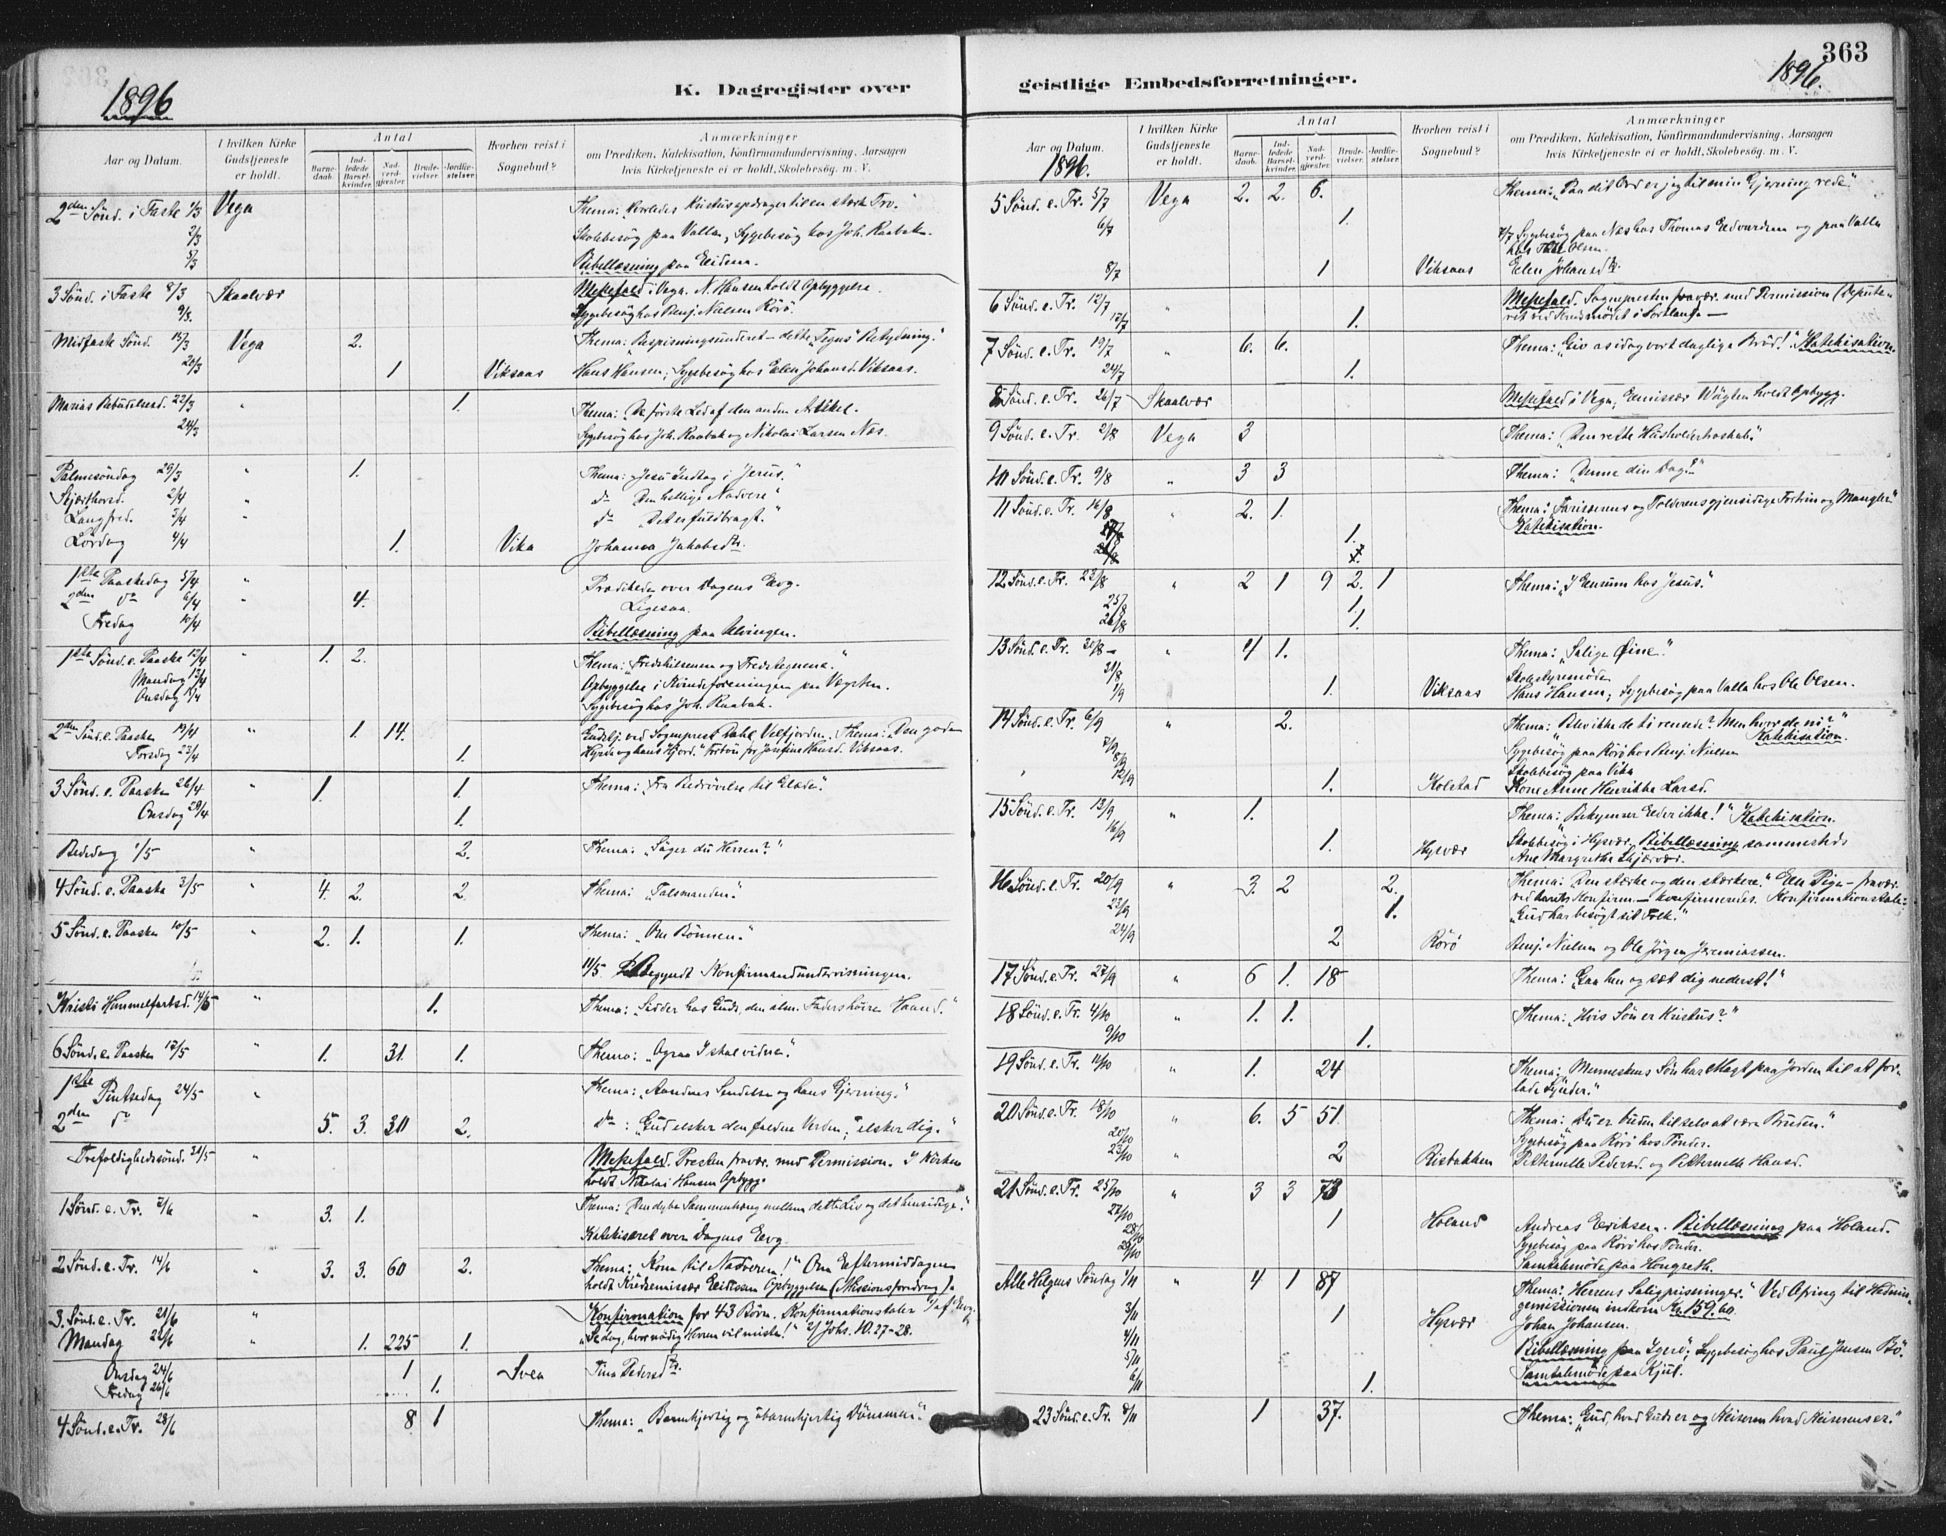 363
1896
K. Dagregister over geistlige Embedsforretninger.
1896.
Aar og Datum.
I hvilken Kirke Gudstjeneste er holdt.
Antal
Barne-daab.
Ind-ledede Barsel-kvinder.
Nad-verd-gjester.
Brude-vielser.
Jordfæ-stelser.
Hvorhen reist i Sognebud?
Anmærkninger
om Prædiken, Katekisation, Konfirmandundervisning, Aarsagen
hvis Kirketjeneste ei er holdt, Skolebesøg m. V.
2den Sønd. i Faste 1/3 Vega Thema: "Hvorledes Kristus opdrager til en stærk Tro."
2/3 Skolebesøg paa Valla, Sygebesøg hos Joh. Raabak.
5/3 Bibellæsning paa Eidem.
3 Sønd. i Faste 8/3 Skaalvær Messefald i Vega. N. Hansen holdt Opbyggelse.
9/3. Sygebesøg hos Benj. Nielsen Rörö.
Midfaste Sønd. 15/3 Vega 2. Thema: "Bespisningsunderet - dette Tegns Betydning."
20/3 1 Viksaas Hans Hansen; Sygebesøg hos Elen Johansd. Viksaas.
Marias Bebudelsesd. 22/3 " 1. Thema: De første Led af den anden Artikel.
24/3 Sygebesøg hos Joh. Raabak og Nikolai Larsen Næs.
Palmesöndag 29/3 " 1. Thema: "Jesu Indtog i Jerus."
Skjærthorsd. 2/4 " do "Den hellige Nadvere"
Langfred. 3/4 " do "Det er fuldbragt."
Lördag 4/4 1. Vika Johanna Jakobsdtr.
1ste Paaskedag 5/4 " Prædikede over Dagens Evg.
2den do 6/4 " 4. Ligesaa.
Fredag 10/4 Bibellæsning paa Ulvingen.
1ste Sønd. e. Paaske 12/4 " 1. 2. Thema: "Fredshilsenen og Fredstegnene."
Mandag 13/4 Opbyggelse i Kvindeforeningen paa Vegsten.
Onsdag 15/4 Sygebesøg hos Joh. Raabak.
2den Sønd. e. Paasken 19/4 " 1 14. Gudstj. ved Sogneprest Dahl Velfjorden. Thema: "Den gode
Torsdag 23/4 1. Hyrde og hans Hjord." for Josefine Hansd. Viksaas.
3 Sønd. e. Paasken 26/4 " 1. 1. Thema: "Fra Bedrövelse til Glæde."
Onsdag 29/4 1.
Bededag 1/5 " 2. Thema: "Söger du Herren?"
4 Sønd. e. Paaske 3/5 " 4. 2. 2. Thema: "Talsmanden."
5 Sønd. e. Paasken 10/5 " 2. 1. 1. Thema: "Om Bönnen."
11/5 Begyndt Konfirmandundervisningen.
Kristi Himmelfartsd. 14/5 " 1. Thema: "Sidder hos Guds, den alm. Faders höire Haand."
6 Sønd. e. Paasken 17/5 " 1. 31. 1. Thema: "Ogsaa I skal vidne."
1ste Pintsedag 24/5 " Thema: "Aandens Sendelse og hans Gjerning."
2den do 5. 3. 30 2. do: "Gud elsker den faldne Verden, elsker dig."
Trefoldighedssönd. 31/5 " Messefald. Presten fravær. med Permission. I Kirken
holdt Nikolai Hansen Opbygg.
1 Sønd. e. Tr. 7/6 " 3. 1. Thema: "Den dybe Sammenhæng mellem dette Liv og det hinsidige."
Katekiseret over Dagens Evg.
2 Sønd. e. Tr. 14/6 " 3. 3. 60 2. Thema: "Kom til Nadveren!" Om Eftermiddagen
holdt Kredsemissær Eriksen Opbyggelse (Missionsforedrag).
3. Sønd. e. Tr. 21/6 " Konfirmation for 43 Börn. Konfirmationstaler
Mandag 22/6 1. 225 1. "Se dog, hvor nödig Herren vil miste!" 2/ Johs. 10. 27-28.
Onsdag 24/6 1 Svea Tina Pedersdtr.
Fredag 26/6 1.
4 Sønd. e. Tr. 28/6 8 1 Thema: "Barmhjertig og ubarmhjertig Dömmen."
Aar og Datum.
1896.
I hvilken Kirke Gudstjeneste er holdt.
Antal
Barne-daab.
Ind-ledede Barsel-kvinder.
Nad-verd-gjester.
Brude-vielser.
Jordfæ-stelser.
Hvorhen reist i Sognebud?
Anmærkninger
om Prædiken, Katekisation, Konfirmandundervisning, Aarsagen
hvis Kirketjeneste ei er holdt, Skolebesøg m. V.
5 Sønd. e. Tr. 5/7 Vega 2. 2. 6. Thema: "Paa dit Ord er jeg til min Gjerning rede"
6/7 1. 7/7 Sygebesøg paa Næs hos Thomas Edvardsen og paa Valla
hos Olsen.
8/7 1 Viksaas Elen Johansdtr.
6 Sønd. e. Tr. 12/7 " Messefald. Sognepresten fravær. med Permission (Deputeret
12/7 1. ved Fredsmödet i Sortland) -
7 Sønd. e. Tr. 19/7 " 6. 6. Thema: "Giv os idag vort daglige Bröd!" Katekisation.
24/7 1.
8 Sønd. e. Tr. 26/7 Skaalvær Messefald i Vega; Emissær Vågten holdt Opbygg.
9 Sønd. e. Tr. 2/8 Vega 3 Thema: "Den rette Husholderskab."
10 Sønd. e. Tr. 9/8 " 3 3 Thema: "Denne din Dag!"
11 Sønd. e. Tr. 16/8 " 2. 1. Thema: Farisæerens og Tolderens gjensidige Fortrin og Mangler"
1. Katekisation.
12 Sønd. e. Tr. 23/8 " 2 1 9 2. 1 Thema: "I Enrum hos Jesus."
25/8 1.
26/8 1.
13 Sønd. e. Tr. 30/8 " 4 1. Thema: "Salige Øine."
31/8 Skolstyremöde
1/9 1. Viksaas Hans Hansen; Sygebesøg paa Valla hos Ole Olsen.
14 Sønd. e. Tr. 6/9 " 2. Thema: "Blev ikke de ti rensede? Men hvor de ni?"
Katekisation.
7/9 Sygebesøg paa Rörö hos Benj. Nielsen
8/9 Skolebesøg paa Vika
12/9 1. Kolstad Kone Anne Henrikke Larsd.
15 Sønd. e. Tr. 13/9 " 1. Thema: "Bekymrer Eder ikke!" Katekisation.
16/9 1. Hysvær Skolebesøg i Hysvær, Bibellæsning sammesteds
Ane Margrethe Skjærvær.
16 Sønd. e. Tr. 20/9 " 3. 2 2. Thema: "Den stærke og den stærkere." En Pige - fravær.
23/9 1. ved Konfirm. - konfirmeredes. Konfirmationstale:
"Gud har besögt sit Folk."
24/9 2 Rörö Benj. Nielsen og Ole Jörgen Jeremiassen.
17 Sønd. e. Tr. 27/9 " 6 1. 18 Thema: "Gaa hen og sæt dig nederst!"
18 Sønd. e. Tr. 4/10 " 1. 1. Thema: "Hvis Sön er Kristus?"
9/10 1.
19 Sønd. e. Tr. 11/10 " 1. 24 Thema: "Menneskens Sön har Magt paa Jorden til at for-
lade Synder."
20 Sønd. e. Tr. 18/10 " 6. 5 51. Thema: "Du er buden til selv at være Bruden."
20/10 Sygebesøg paa Rörö hos Tönder.
23/10 " 2 Risbakken Petternelle Pedersd. og Petternelle Hansd.
21 Sønd. e. Tr. 25/10 " 3 3 73
27/10 1 Holand Andreas Eriksen. Bibellæsning paa Holand.
28/10 Sygebesøg paa Rörö hos Tönder.
29/10 Samtalemöde paa Hongseth.
Alle Helgens Söndag 1/11 " 4 1 87 Thema: Herrens Saligprisninger." Ved Ofring til Hednin-
gemissionen indkom Kr. 159,60.
3/11 1 Hysvær Johan Johansen.
4/11 Bibellæsning paa Igerö; Sygebesøg hos Paul Jensen Bö.
5/11 Samtalemöde paa Kjul.
6/11 1.
23 Sønd. e. Tr. 8/11 1 37. Thema: "Gud, hvad Guds er og Keiseren hvad Keiserens er."